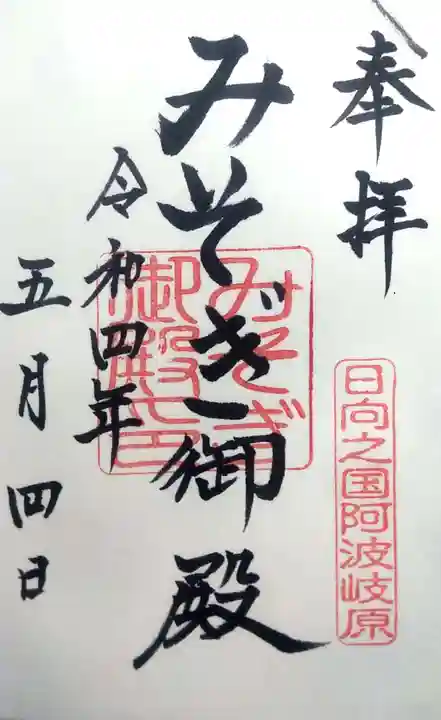 奉拝
日向之国阿波岐原
みそぎ御殿
みそぎ
御殿印
令和四年
五月四日